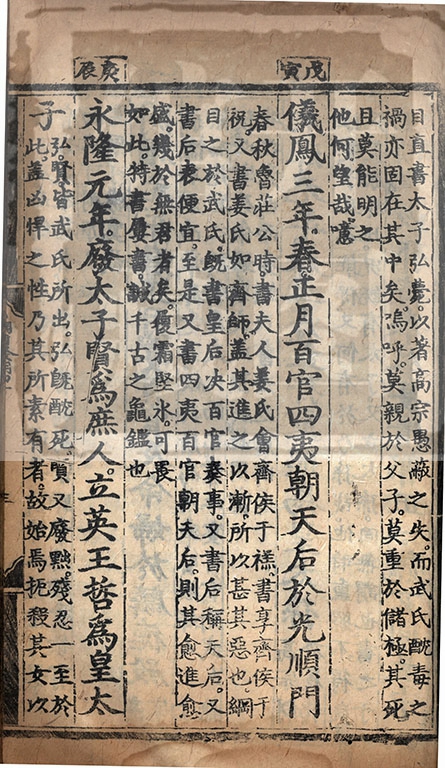 戊寅
庚辰
目直書太子弘薨以著高宗愚蔽之失而武氏酖毒之
禍亦固在其中矣嗚呼莫親於父子莫重於儲極其死
且莫能明之
他何望哉噫
儀鳳三年春正月百官四夷朝天后於光順門
春秋魯莊公時書夫人姜氏會齊侯于禚書享齊侯于
祝又書姜氏如齊師蓋其進之以漸所以甚其惡也綱
目之於武氏旣書皇后决百官奏事又書后稱天后又
書后表便宜至是又書四夷百官朝天后則其愈進愈
盛幾於無君者矣履霜堅氷可畏
如此特書屢書誠千古之龜鑑也
永隆元年廢太子賢爲庶人立英王哲爲皇太
子
弘賢皆武氏所出弘旣酖死賢又廢黜殘忍一至於
此蓋凶悍之性乃其所素有者故始焉扼殺其女以